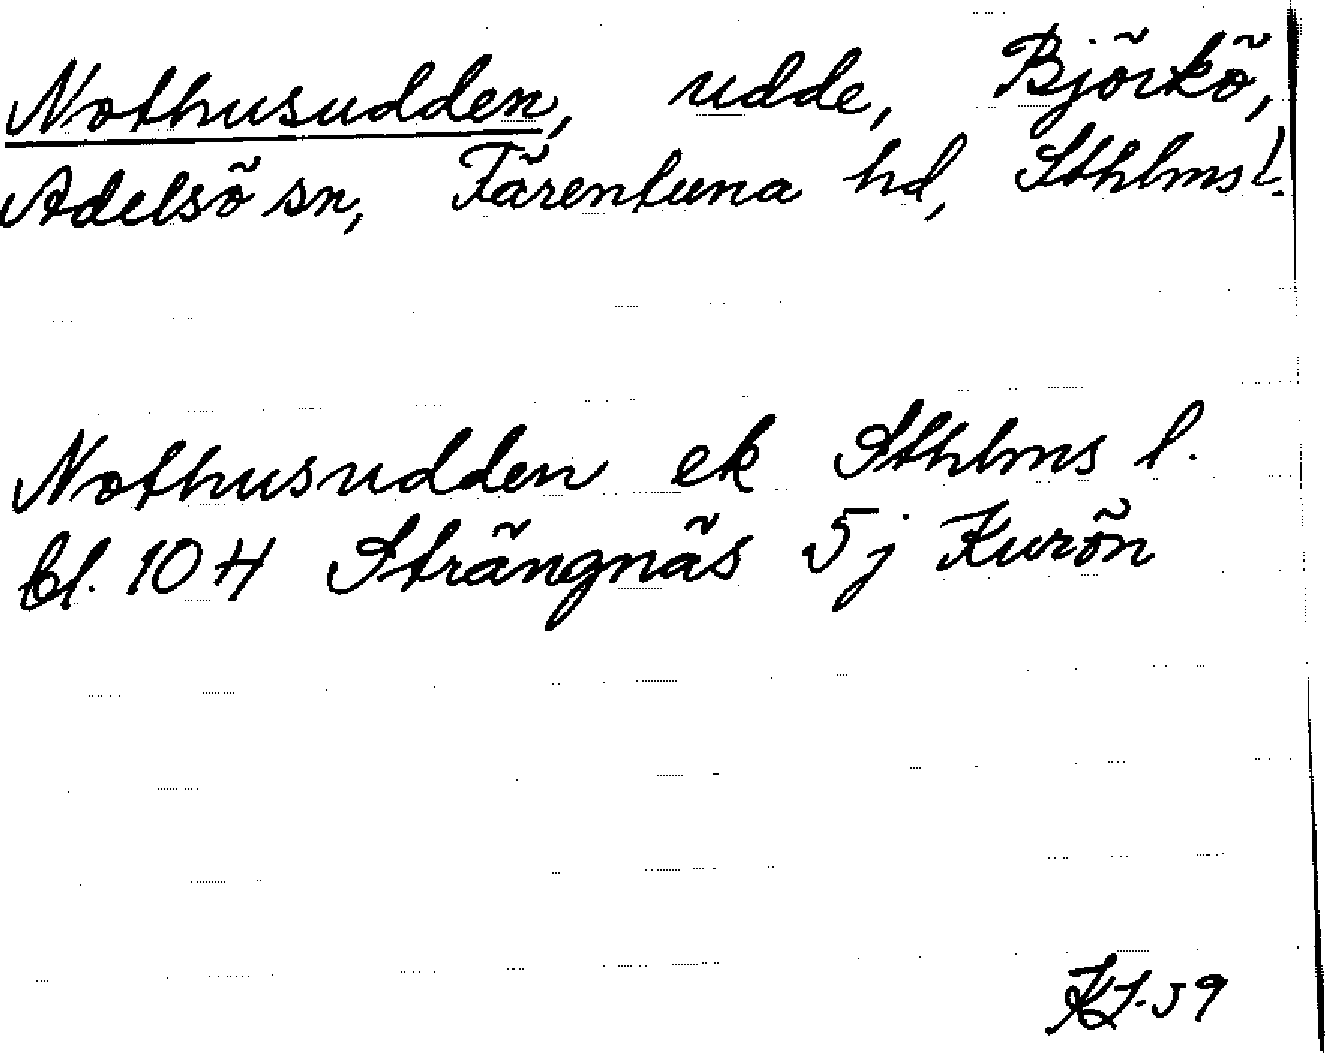 Nothusudden, udde, Björkö,
Adelsö sn, Färentuna hd, Sthlms l.
Nothusudden ek Sthlms l.
bl. 10 H Strängnäs 5 j Kurön